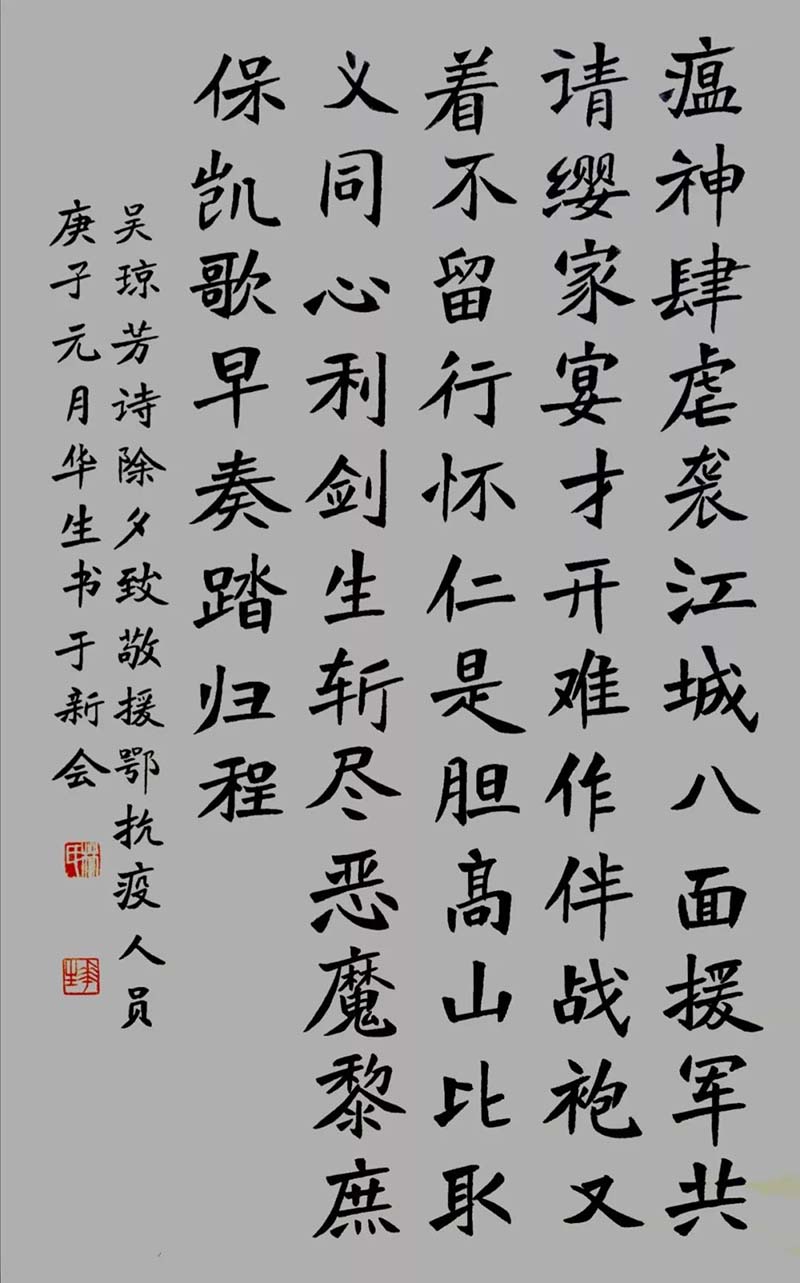 瘟神肆虐袭江城八面援军共
请缨家宴才开难作伴战袍又
着不留行怀仁是胆高山比取
义同心利剑生斩尽恶魔黎庶
保凯歌早奏踏归程
吴琼芳诗除夕致敬援鄂抗疫人员
庚子元月华生书于新会